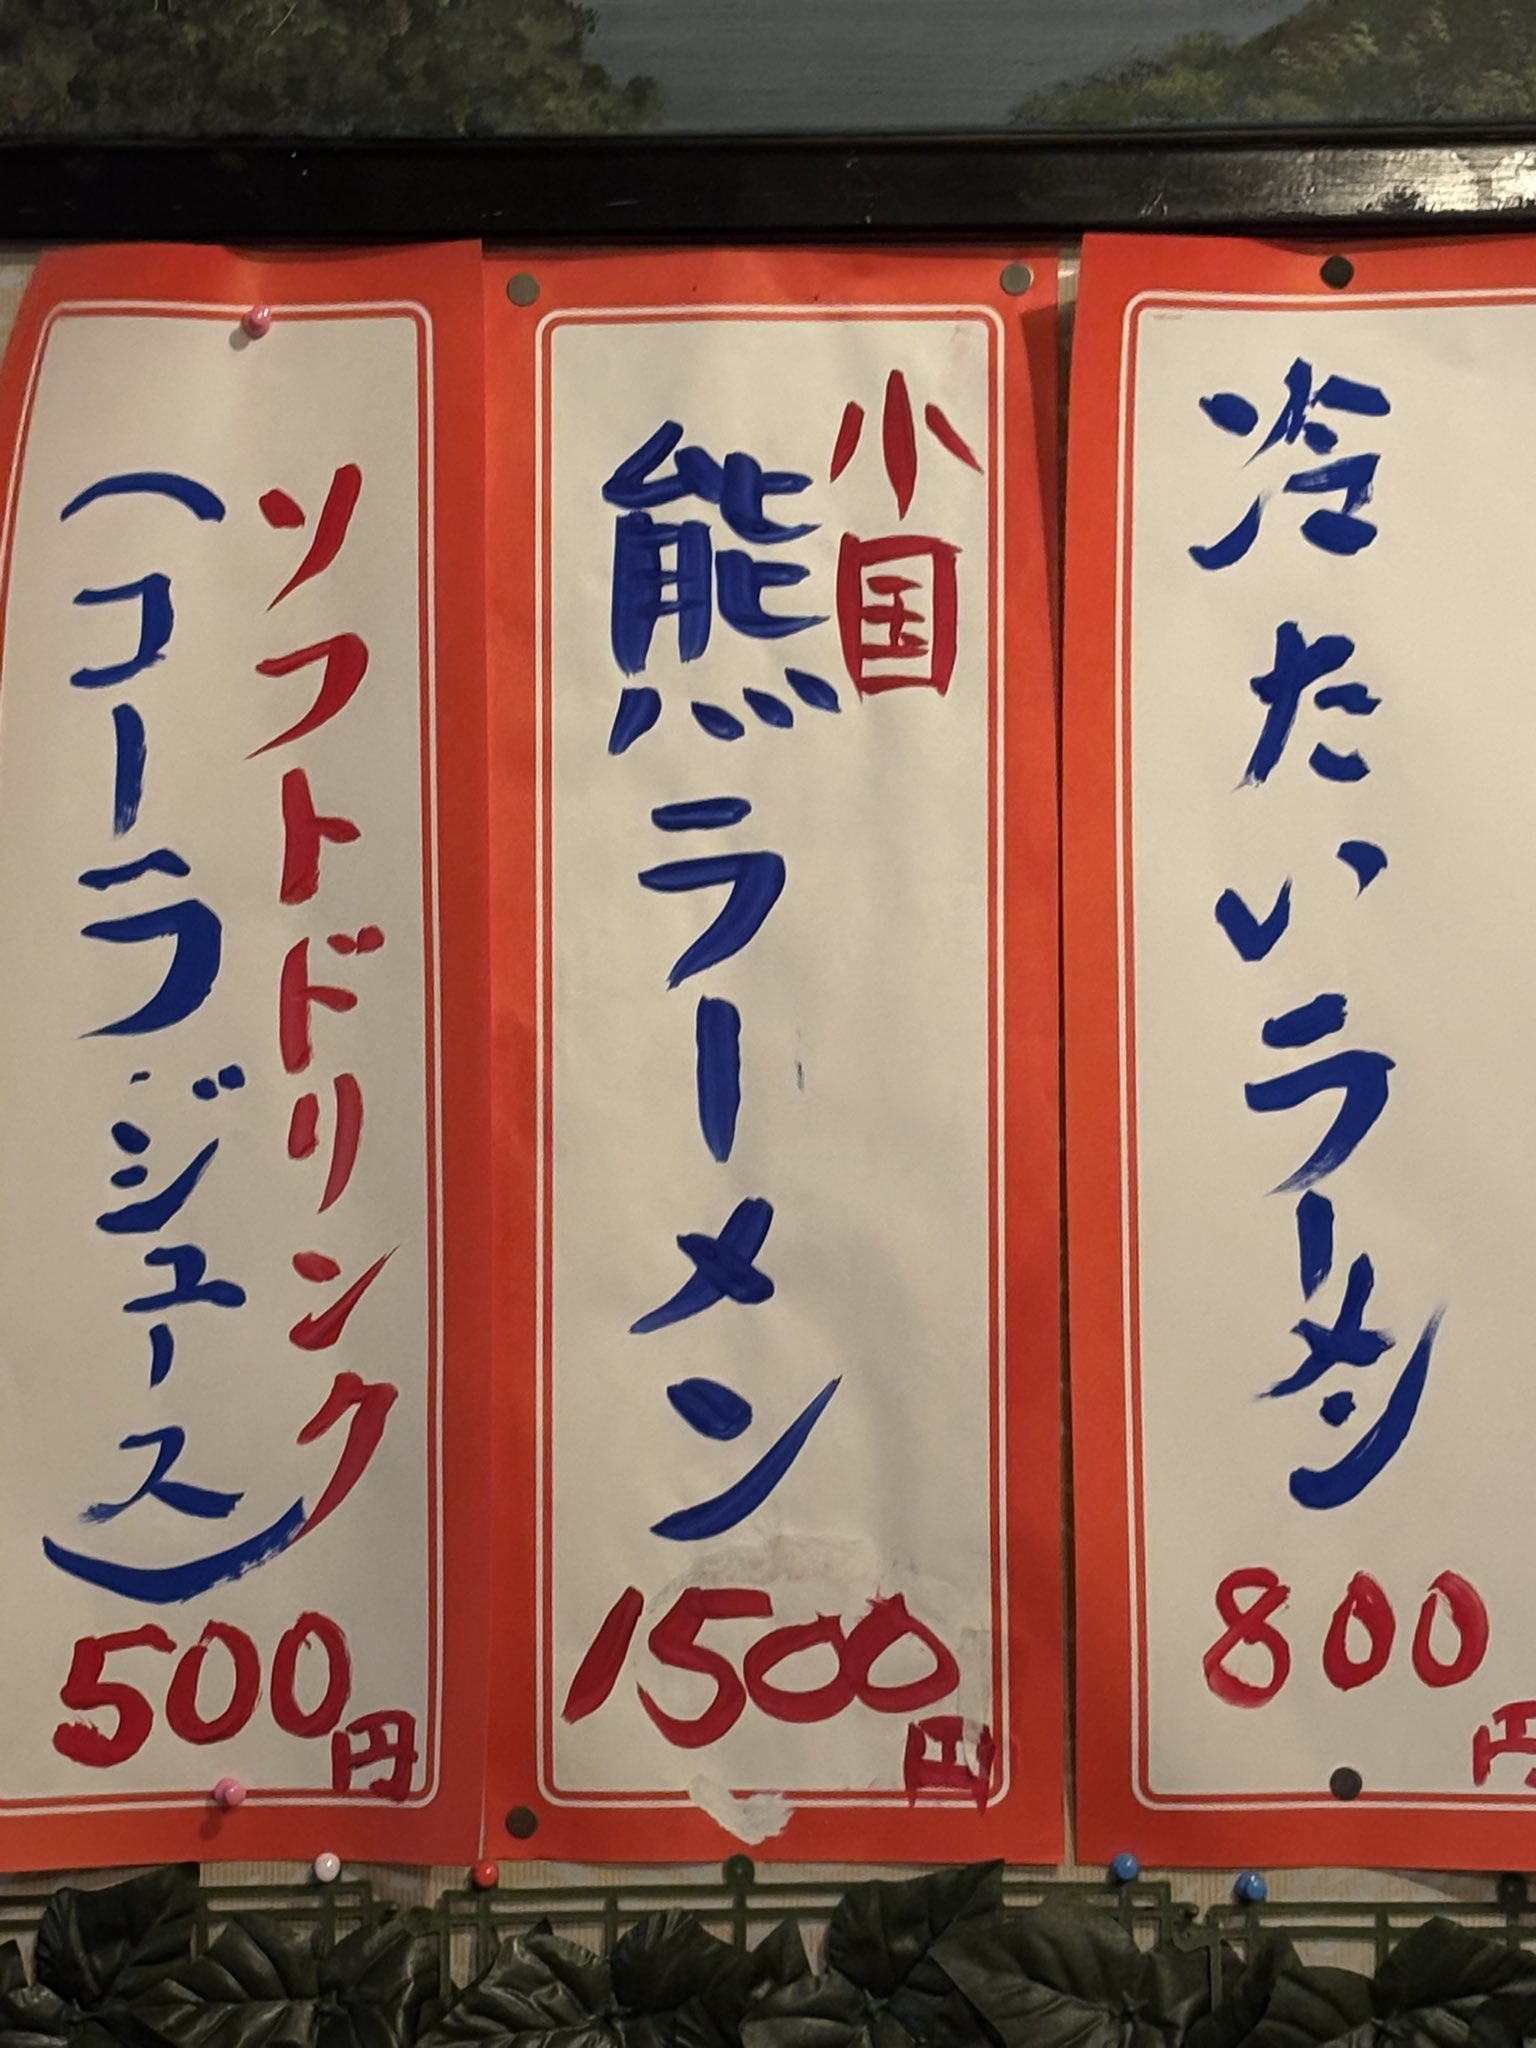 冷たいラーメン
800円
小国
熊ラーメン
1500円
ソフトドリンク
(コーラ・ジュース)
500円